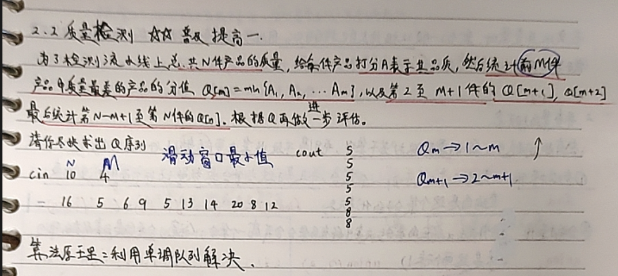 2.2 质量检测 ☆☆ 普及提高一.
为了检测流水线上总共N件产品的质量, 给每件产品打分A表示其品质, 然后统计前M件
产品中质量最差的产品的分值 Q[m]=min{A₁, A₂, ... Am}, 以及第2至 M+1件的 Q[m+1], Q[m+2]
最后统计第N-M+1至第N件的Q[n]. 根据Q再做进一步评估。
请你尽快求出Q序列 滑动窗口最小值 cout 5 Qm→1~m ↑
N M 5
cin 10 4 5 Qm+1→2~m+1
5
- 16 5 6 9 5 13 14 20 8 12 5
8
8
算法原理:利用单调队列解决.